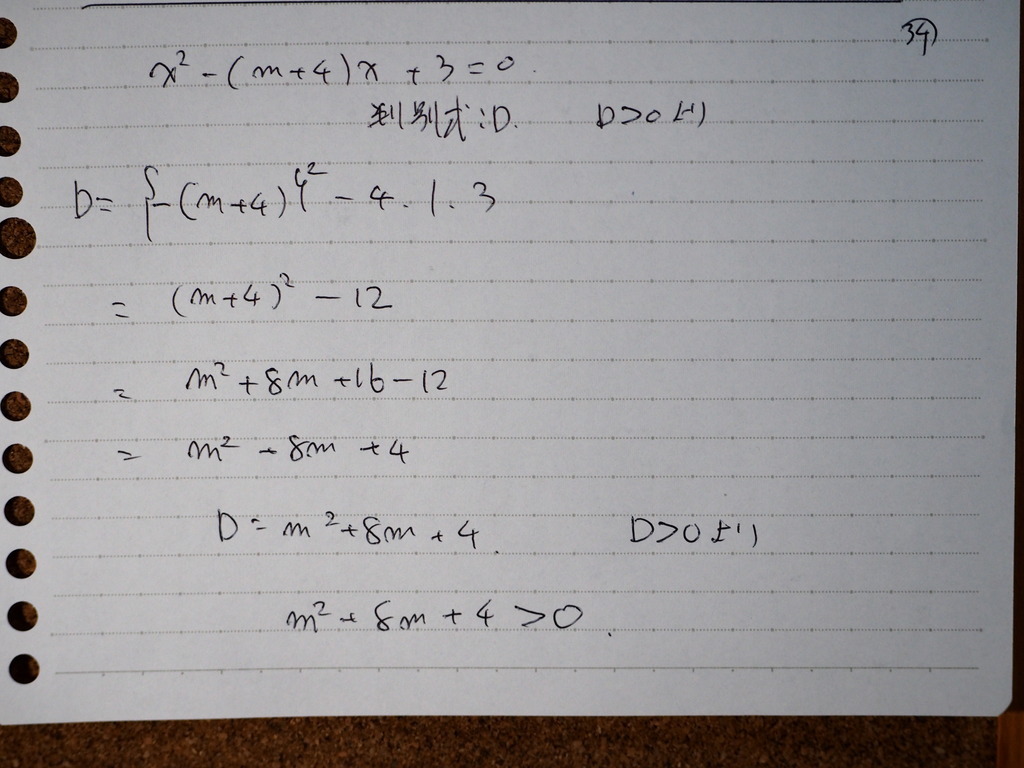 34
x² - (m+4)x + 3 = 0.
判別式:D. D>0より
D = {-(m+4)}² - 4.1.3
= (m+4)² - 12
= m² + 8m + 16 - 12
= m² + 8m + 4
D = m² + 8m + 4. D>0より
m² + 8m + 4 > 0.